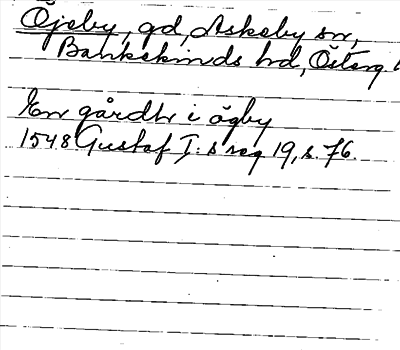 Öjeby, gd, Askeby sn,
Bankekinds hd, Österg.
En gårdh i ögby
1548 Gustaf I: s reg 19, s. 76.